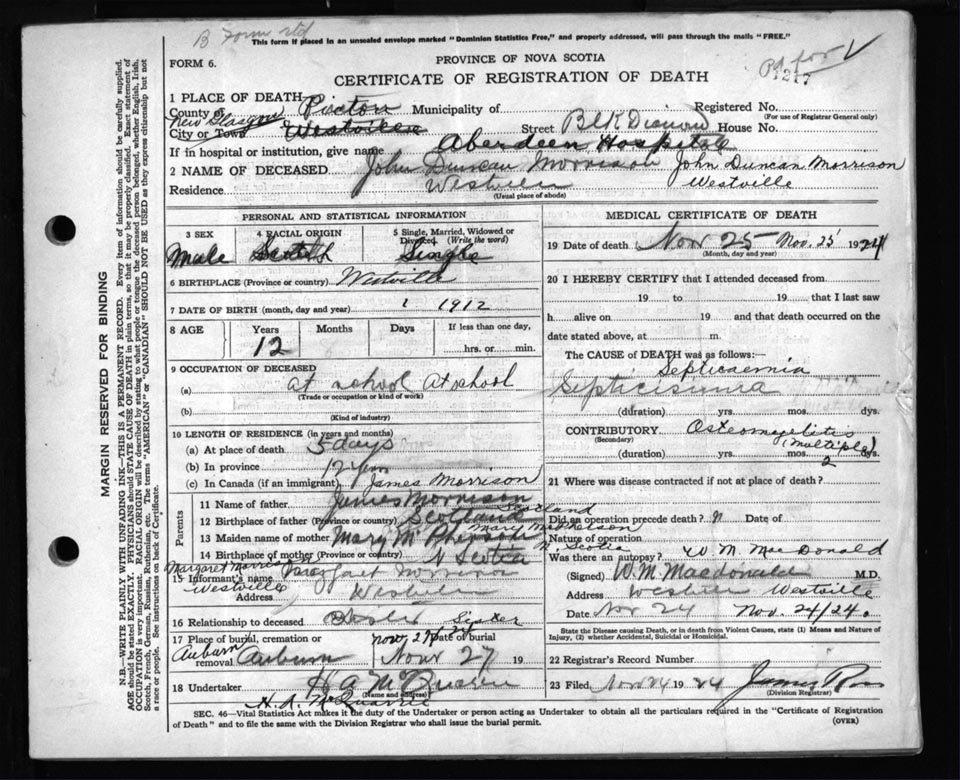 B Form std
This form if placed in an unsealed envelope marked "Dominion Statistics Free," and properly addressed, will pass through the mails "FREE."
FORM 6.
PROVINCE OF NOVA SCOTIA
CERTIFICATE OF REGISTRATION OF DEATH
1217
1 PLACE OF DEATH
County of Pictou Municipality of Registered No.
(For use of Registrar General only)
New Glasgow
City or Town Westville Street House No.
If in hospital or institution, give name Aberdeen Hospital
2 NAME OF DECEASED John Duncan Morrison John Duncan Morrison
Residence Westville Westville
(Usual place of abode)
PERSONAL AND STATISTICAL INFORMATION
3 SEX 4 RACIAL ORIGIN 5 Single, Married, Widowed or Divorced (Write the word)
Male Scotch Single
6 BIRTHPLACE (Province or country) Westville
7 DATE OF BIRTH (month, day and year) 1912
8 AGE Years Months Days If less than one day,
12 hrs. or min.
9 OCCUPATION OF DECEASED
(a) at school At school
(Trade or occupation or kind of work)
(b)
(Kind of industry)
10 LENGTH OF RESIDENCE (in years and months)
(a) At place of death 5 days
(b) In province 12
(c) In Canada (if an immigrant) James Morrison
Parents
11 Name of father James Morrison
Scotland
12 Birthplace of father (Province or country) Scotland
13 Maiden name of mother Mary
14 Birthplace of mother (Province or country) N Scotia
N. Scotia
Margaret Morrison
15 Informant's name Margaret Morrison
Westville
Address Westville
16 Relationship to deceased Sister Sister
17 Place of burial, cremation or removal Date of burial
Nov 27/24
Auburn Auburn Nov 27 19
18 Undertaker H A
(Name and address)
H. A. McQuarrie
MEDICAL CERTIFICATE OF DEATH
19 Date of death Nov 25 Nov. 25 1924
(Month, day and year)
20 I HEREBY CERTIFY that I attended deceased from
19 to 19 that I last saw
h alive on 19 and that death occurred on
date stated above, at m.
The CAUSE of DEATH was as follows:—
Septicaemia
(duration) yrs. mos. dys.
CONTRIBUTORY Osteomyelitis
(Secondary) (multiple)
(duration) yrs. mos. 2 dys.
21 Where was disease contracted if not at place of death?
Did an operation precede death? Date of
Nature of operation
Was there an autopsy? W. M. MacDonald
(Signed) W. M. Macdonald M.D.
Address Westville Westville
Date Nov 24 Nov. 24/24.
State the Disease causing Death, or in death from Violent Causes, state (1) Means and Nature of Injury, (2) whether Accidental, Suicidal or Homicidal.
22 Registrars Record Number
23 Filed Nov 24 1924 James Ross
(Division Registrar)
SEC. 46—Vital Statistics Act makes it the duty of the Undertaker or person acting as Undertaker to obtain all the particulars required in the "Certificate of Registration
of Death" and to file the same with the Division Registrar who shall issue the burial permit. (OVER)
MARGIN RESERVED FOR BINDING
N.B.—WRITE PLAINLY WITH UNFADING INK—THIS IS A PERMANENT RECORD. Every item of information should be carefully supplied.
AGE should be stated EXACTLY. PHYSICIANS should STATE CAUSE OF DEATH in plain terms, so that it may be properly classified. Exact statement of
OCCUPATION is very important. RACIAL ORIGIN will be described by stating to what people or tongue the deceased person belonged, whether English, Irish,
Scotch, French, German, Russian, Ruthenian, etc. The terms "AMERICAN" or "CANADIAN" SHOULD NOT BE USED as they express citizenship but not
a race or people. See instructions on back of Certificate.